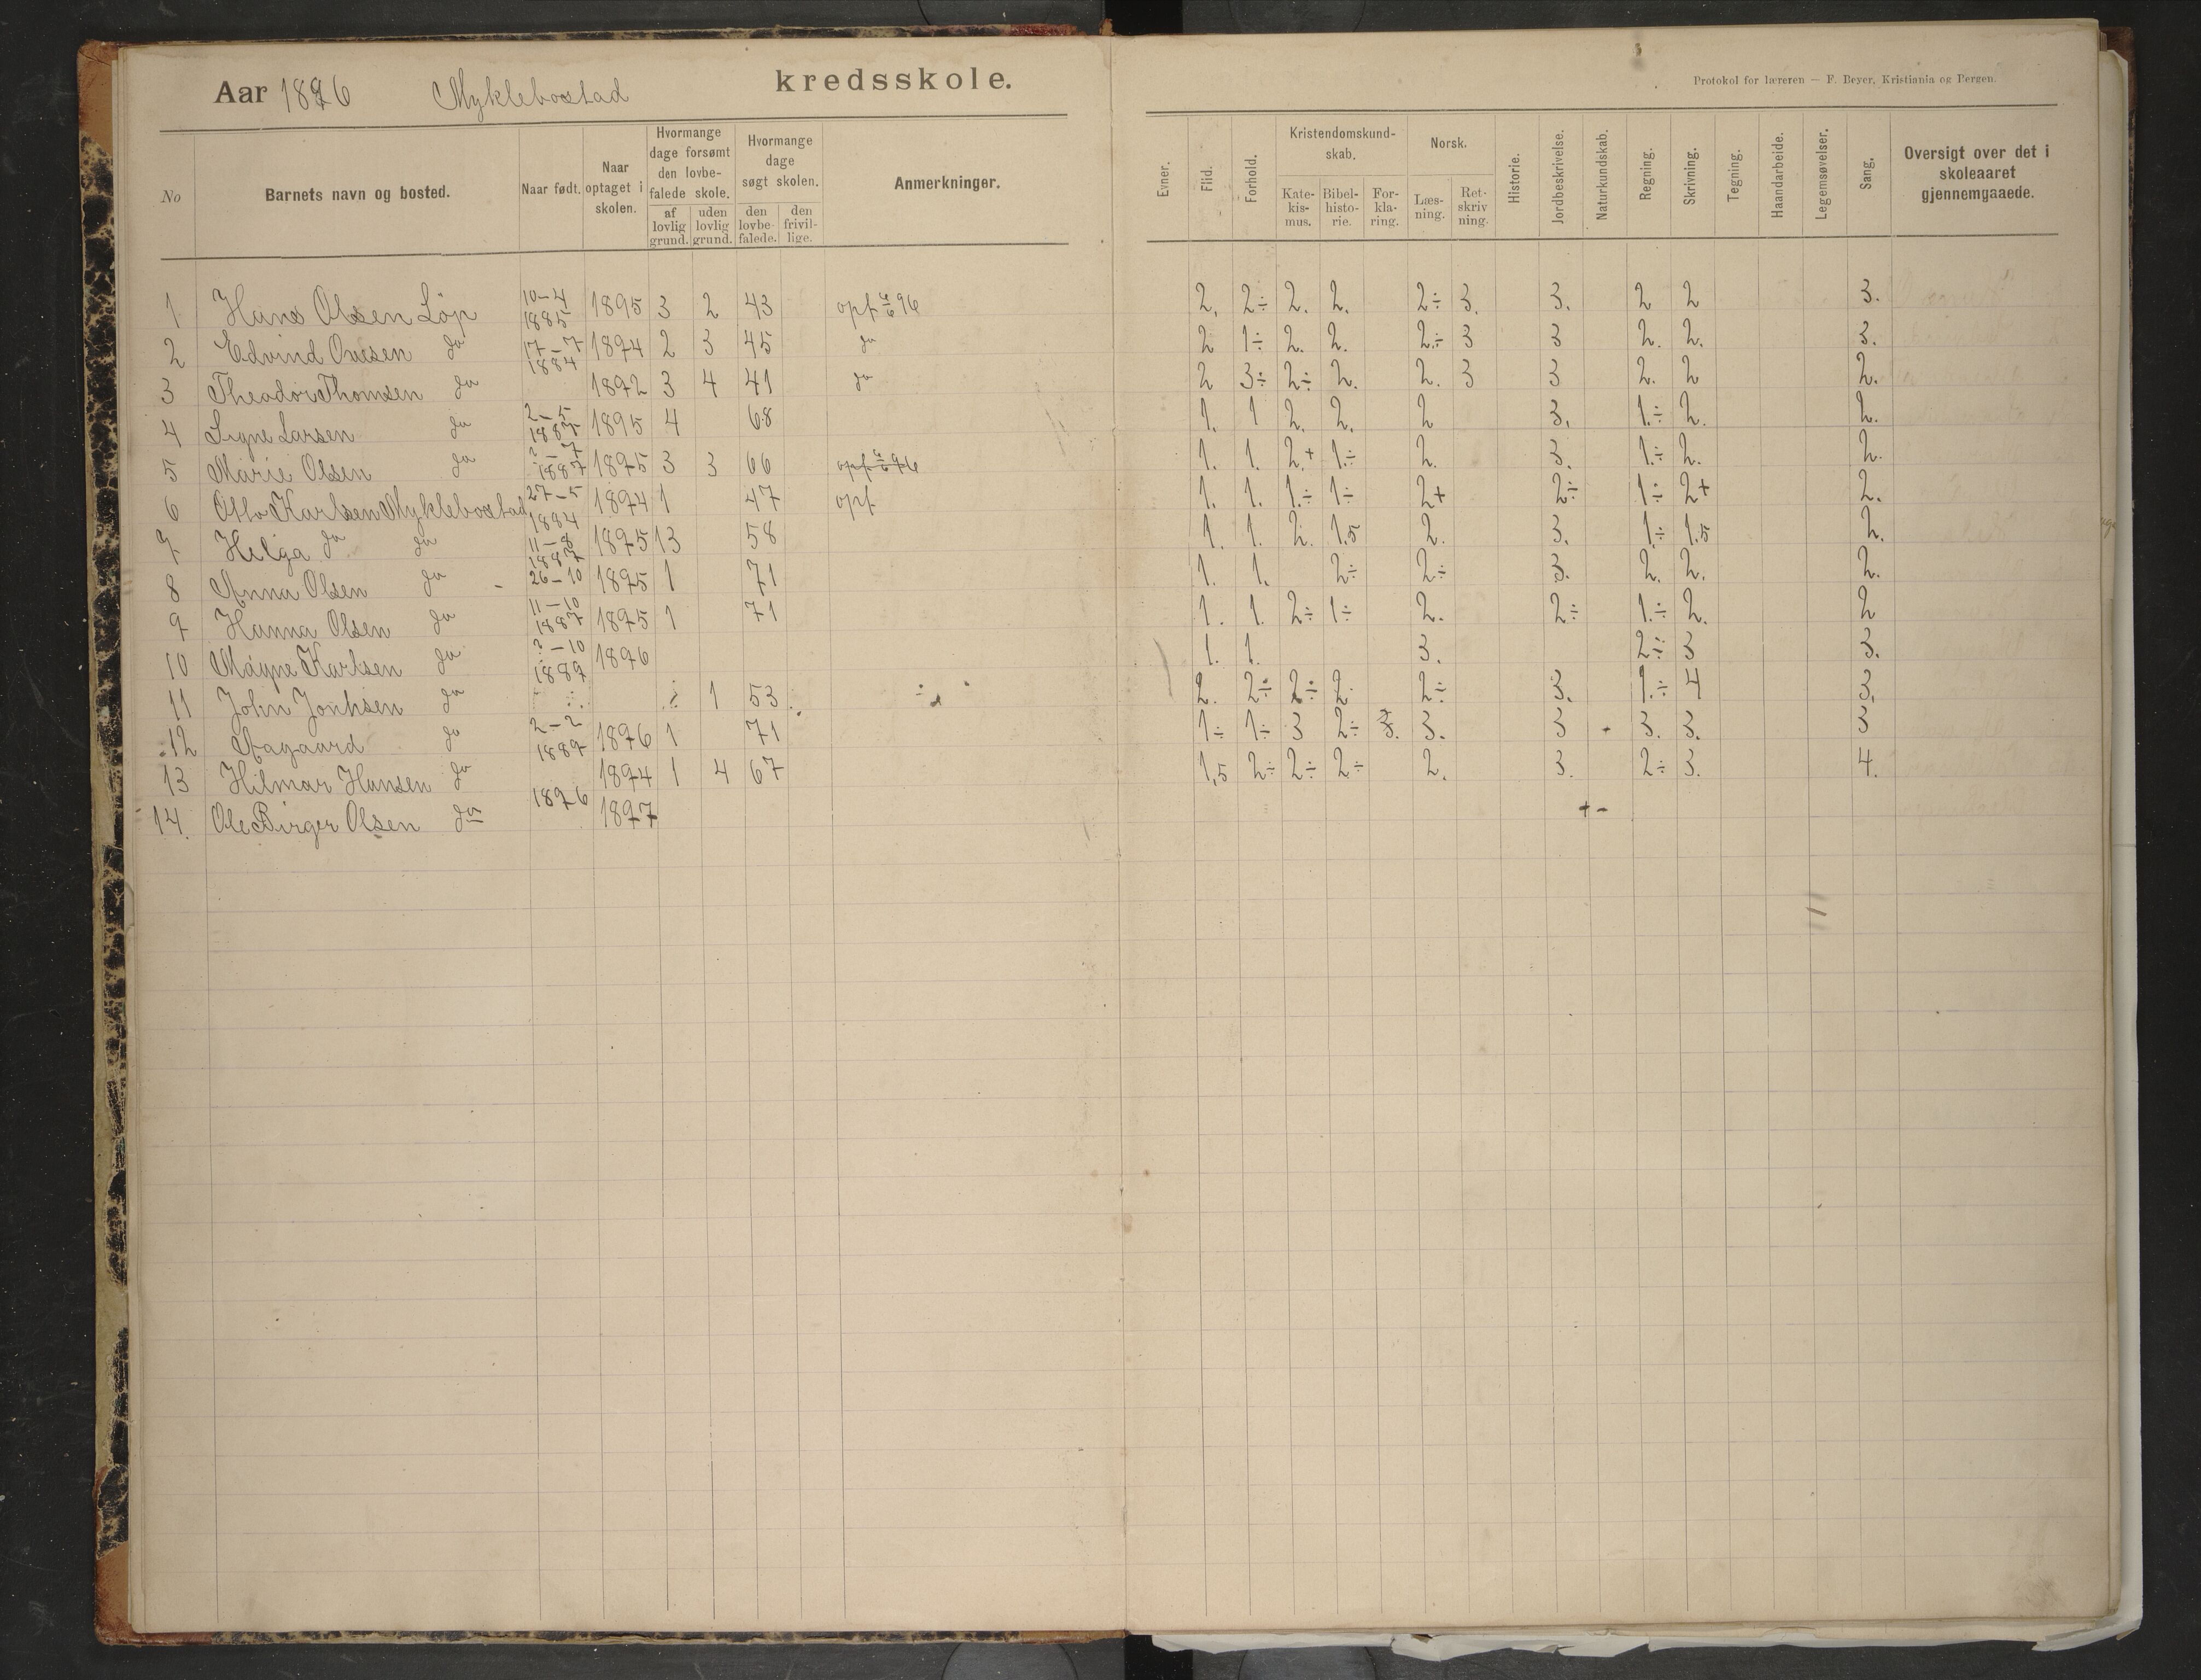 Aar 1896 Myklebostad kredsskole.
Protokol for læreren — F. Beyer, Kristiania og Bergen.
No
Barnets navn og bosted.
Naar født.
Naar optaget i skolen.
Hvormange dage forsømt den lovbefalede skole.
af lovlig grund.
uden lovlig grund.
Hvormange dage søgt skolen.
den lovbefalede.
den frivillige.
Anmerkninger.
Evner.
Flid.
Forhold.
Kristendomskundskab.
Katekismus.
Bibelhistorie.
Forklaring.
Norsk.
Læsning.
Retskriv ning.
Historie.
Jordbeskrivelse.
Naturkundskab.
Regning.
Skrivning.
Tegning.
Haandarbeide.
Legemsøvelser.
Sang.
Oversigt over det i skoleaaret gjennemgaaede.
1 Hans Olsen Løp 10-4 1885 1895 3 2 43 opf 96 2. 2÷ 2. 2. 2÷ 3. 3. 2 2 3.
2 Edvind Ovesen do 17-7 1884 1894 2 3 45 do 2 1÷ 2. 2. 2÷ 3 3 2. 2. 3.
3 Theodor Thomsen do 1892 3 4 41 do 2 3÷ 2÷ 2. 2. 3 3 2. 2 2.
4 Signe Larsen do 2-5 1887 1895 4 68 1. 1 2. 2. 2 3. 1.÷ 2. 2.
5 Marie Olsen do ?-7 1887 1895 3 3 66 opf 96 1. 1. 2.+ 1.÷ 2. 3. 1.÷ 2. 2.
6 Otto Karlsen Myklebostad 27-5 1884 1894 1 47 opf 1. 1. 1.÷ 1÷ 2+ 2÷ 1÷ 2+ 2.
7 Helga do do 11-8 1887 1895 13 58 1. 1. 2. 1.5 2. 3. 1÷ 1.5 2.
8 Anna Olsen do 26-10 1895 1 71 1. 1. 2÷ 2÷ 3. 2. 2. 2.
9 Hanna Olsen do 11-10 1887 1895 1 71 1. 1. 2÷ 1÷ 2. 2÷ 1.÷ 2. 2
10 Magne Karlsen do ?-10 1889 1896 1. 1. 3. 2÷ 3 3.
11 John Jonhsen do 1 53 2. 2÷ 2÷ 2. 2÷ 3. 1.÷ 4 3.
12 Aagaard do 2-2 1889 1896 1 71 1÷ 1÷ 3 2÷ 3. 3. 3 3. 3. 3
13 Hilmar Hansen do 1894 1 4 67 1,5 2÷ 2÷ 2÷ 2. 3. 2÷ 3. 4.
14. Ole Birger Olsen do 1896 1897 + -